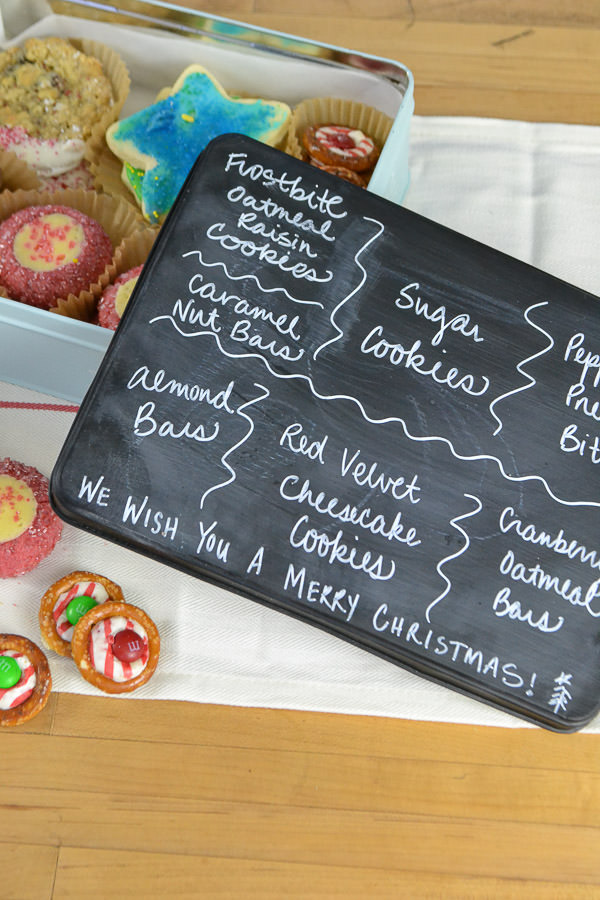 Frostbite
Oatmeal
Raisin
Cookies
Caramel
Nut Bars
Sugar
Cookies
Almond
Bars
Red Velvet
Cheesecake
Cookies
Oatmeal
Bars
WE WISH YOU A MERRY CHRISTMAS!
m
m
m